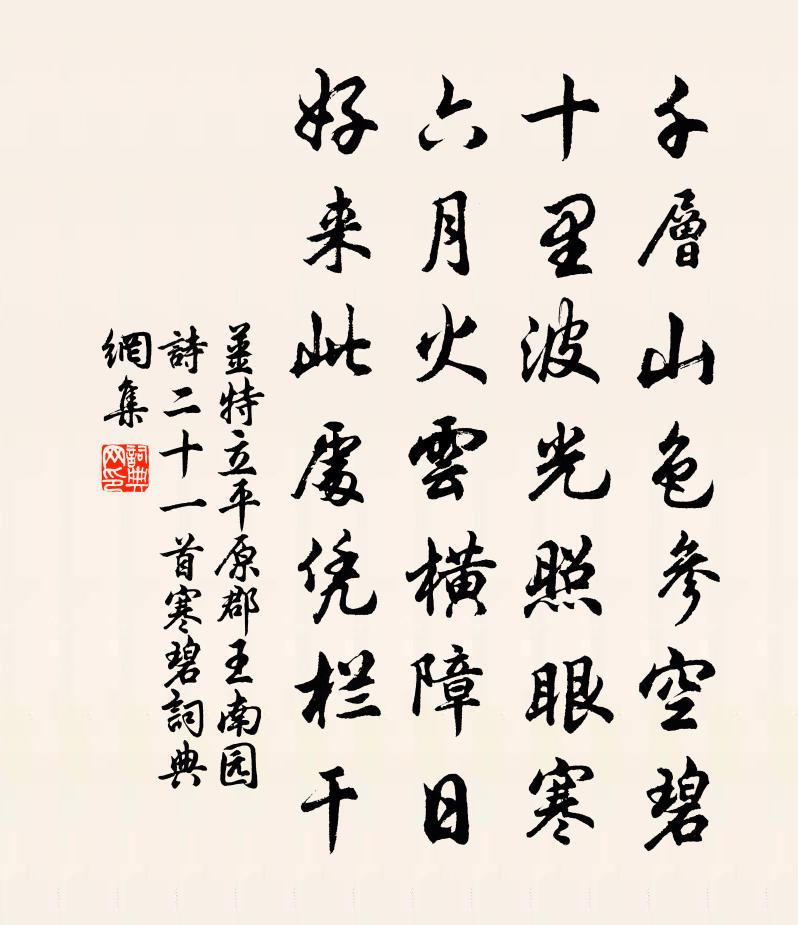 千層山色參空碧
十里波光照眼寒
六月火雲橫障日
好来此處凭栏干
姜特立平原郡王南园
詩二十一首寒碧詞典
網集
詞典网印